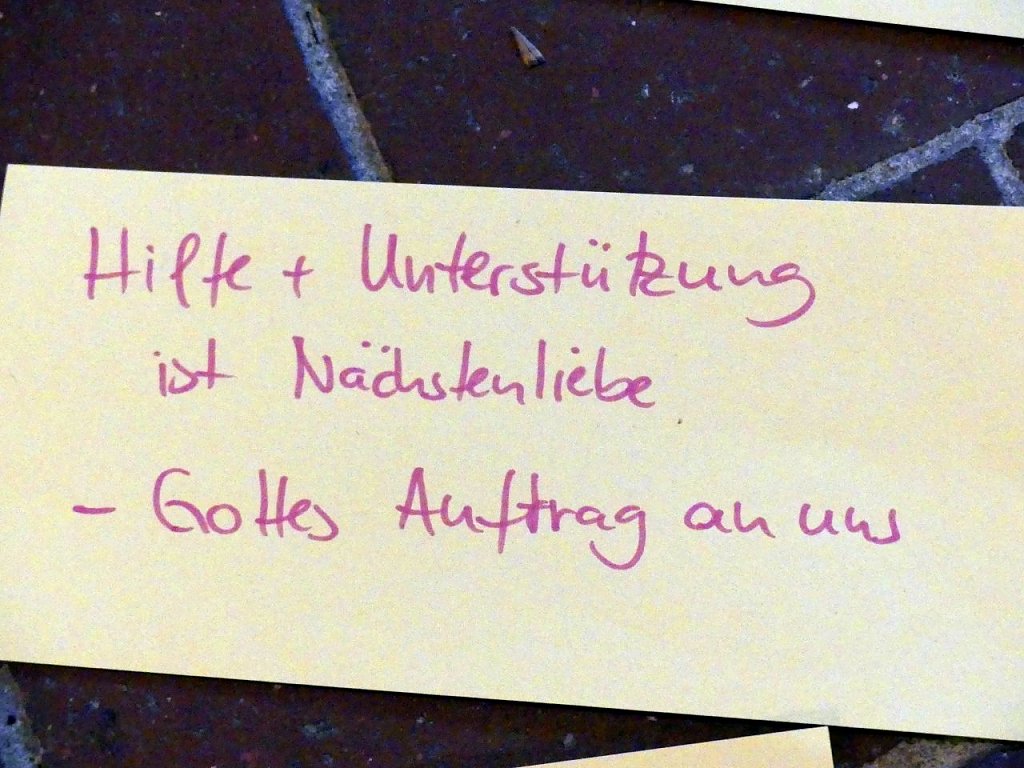 Hilfe + Unterstützung
ist Nächstenliebe
- Gottes Auftrag an uns